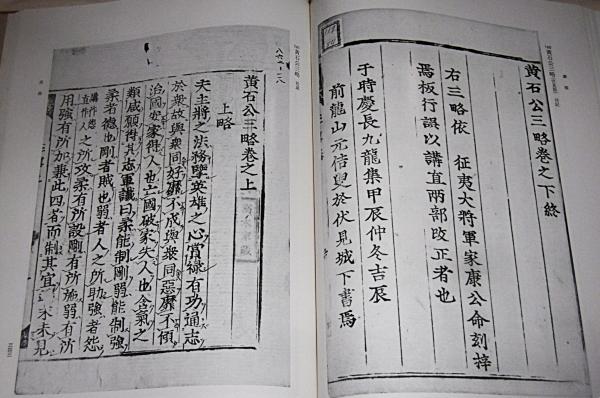 黄石公三略卷之下終
右三略依 征夷大将軍家康公命刻梓
焉板行誤以講直兩部改正者也
于時慶長九龍集甲辰仲冬吉辰
前龍山元佶叟於伏見城下書焉
黄石公三略卷之上
上略
夫主將之法務擥英雄之心賞祿有功通志
於衆故與衆同好靡不成與衆同惡靡不傾
治國安家得人也亡國破家失人也含氣之
類咸願得其志軍讖曰柔能制剛弱能制強
柔者德也剛者賊也弱者人之所助強者怨
之所攻柔有所設剛有所施弱有所
用強有所加兼此四者而制其宜 未見